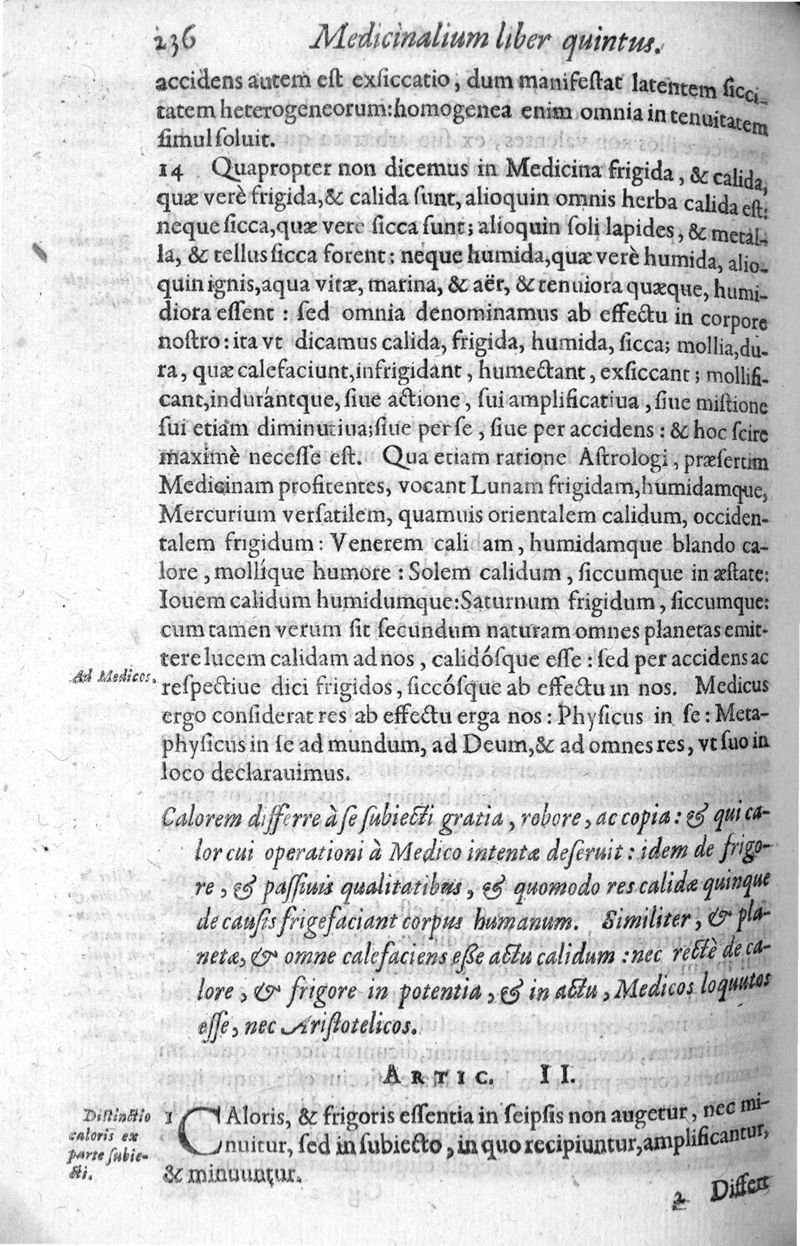 236 Medicinalium liber quintus.
accidens autem est exsiccatio, dum manifestat latentem sicci-
tatem heterogeneorum: homogenea enim omnia in tenuitatem
simul soluit.
14 Quapropter non dicemus in Medicina frigida, & calida,
quæ verè frigida, & calida sunt, alioquin omnis herba calida est:
neque sicca, quæ vere sicca sunt; alioquin soli lapides, & metal-
la, & tellus sicca forent: neque humida, quæ verè humida, alio-
quin ignis, aqua vitæ, marina, & aër, & tenuiora quæque, humi-
diora essent: sed omnia denominamus ab effectu in corpore
nostro: ita vt dicamus calida, frigida, humida, sicca; mollia, du-
ra, quæ calefaciunt, infrigidant, humectant, exsiccant; mollifi-
cant, indurántque, siue actione, sui amplificatiua, siue mistione
sui etiam diminutiua; siue per se, siue per accidens: & hoc scire
maximè necesse est. Qua etiam ratione Astrologi, præsertim
Medicinam profitentes, vocant Lunam frigidam, humidamque,
Mercurium versatilem, quamuis orientalem calidum, occiden-
talem frigidum: Venerem cali am, humidamque blando ca-
lore, mollíque humore: Solem calidum, siccumque in æstate:
Iouem calidum humidumque: Saturnum frigidum, siccumque:
cum tamen verum sit secundum naturam omnes planetas emit-
tere lucem calidam ad nos, calidósque esse: sed per accidens ac
Ad Medicos.
respectiue dici frigidos, siccósque ab effectu in nos. Medicus
ergo considerat res ab effectu erga nos: Physicus in se: Meta-
physicus in se ad mundum, ad Deum, & ad omnes res, vt suo in
loco declarauimus.
Calorem differre à se subiecti gratia, robore, ac copia: & qui ca-
lor cui operationi à Medico intentæ deseruit: idem de frigo-
re, & passiuis qualitatibus, & quomodo res calidæ quinque
de causis frigefaciant corpus humanum. Similiter, & pla-
netæ, & omne calefaciens esse actu calidum: nec rectè de ca-
lore, & frigore in potentia, & in actu, Medicos loquutos
esse, nec Aristotelicos.
ARTIC. II.
Distinctio
caloris ex
parte subie-
cti.
1 CAloris, & frigoris essentia in seipsis non augetur, nec mi-
nuitur, sed in subiecto, in quo recipiuntur, amplificantur,
& minuuntur.
2 Differt